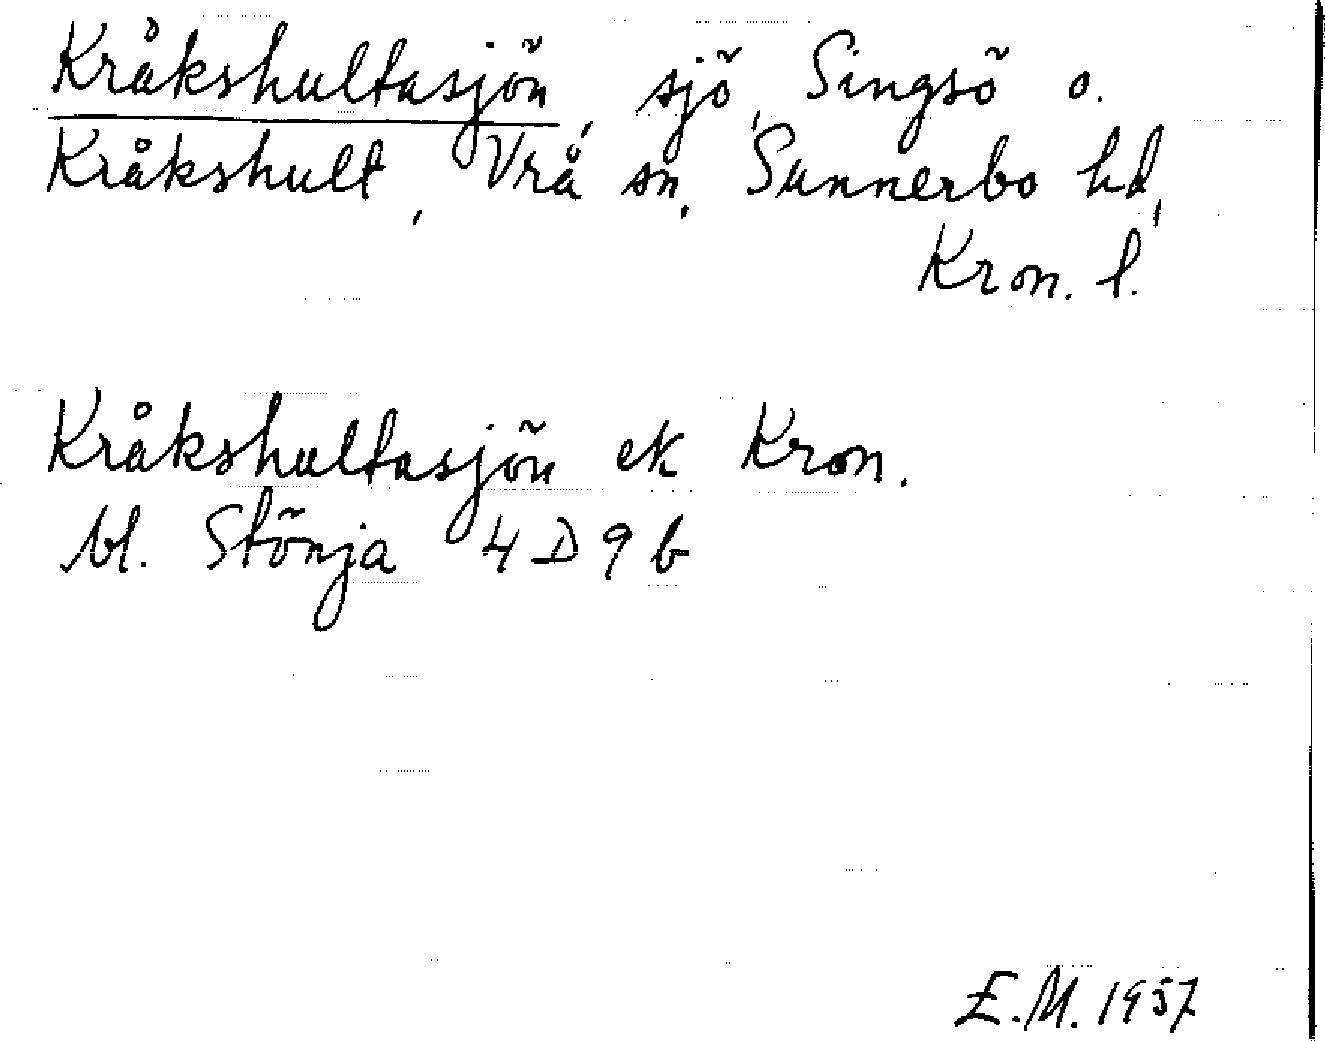 Kråkshultasjön, sjö, Singsö o.
Kråkshult, Vrå sn, Sunnerbo hd,
Kron. l.
Kråkshultasjön ek Kron.
bl. Stönja 4 D 9 b
E.M. 1957